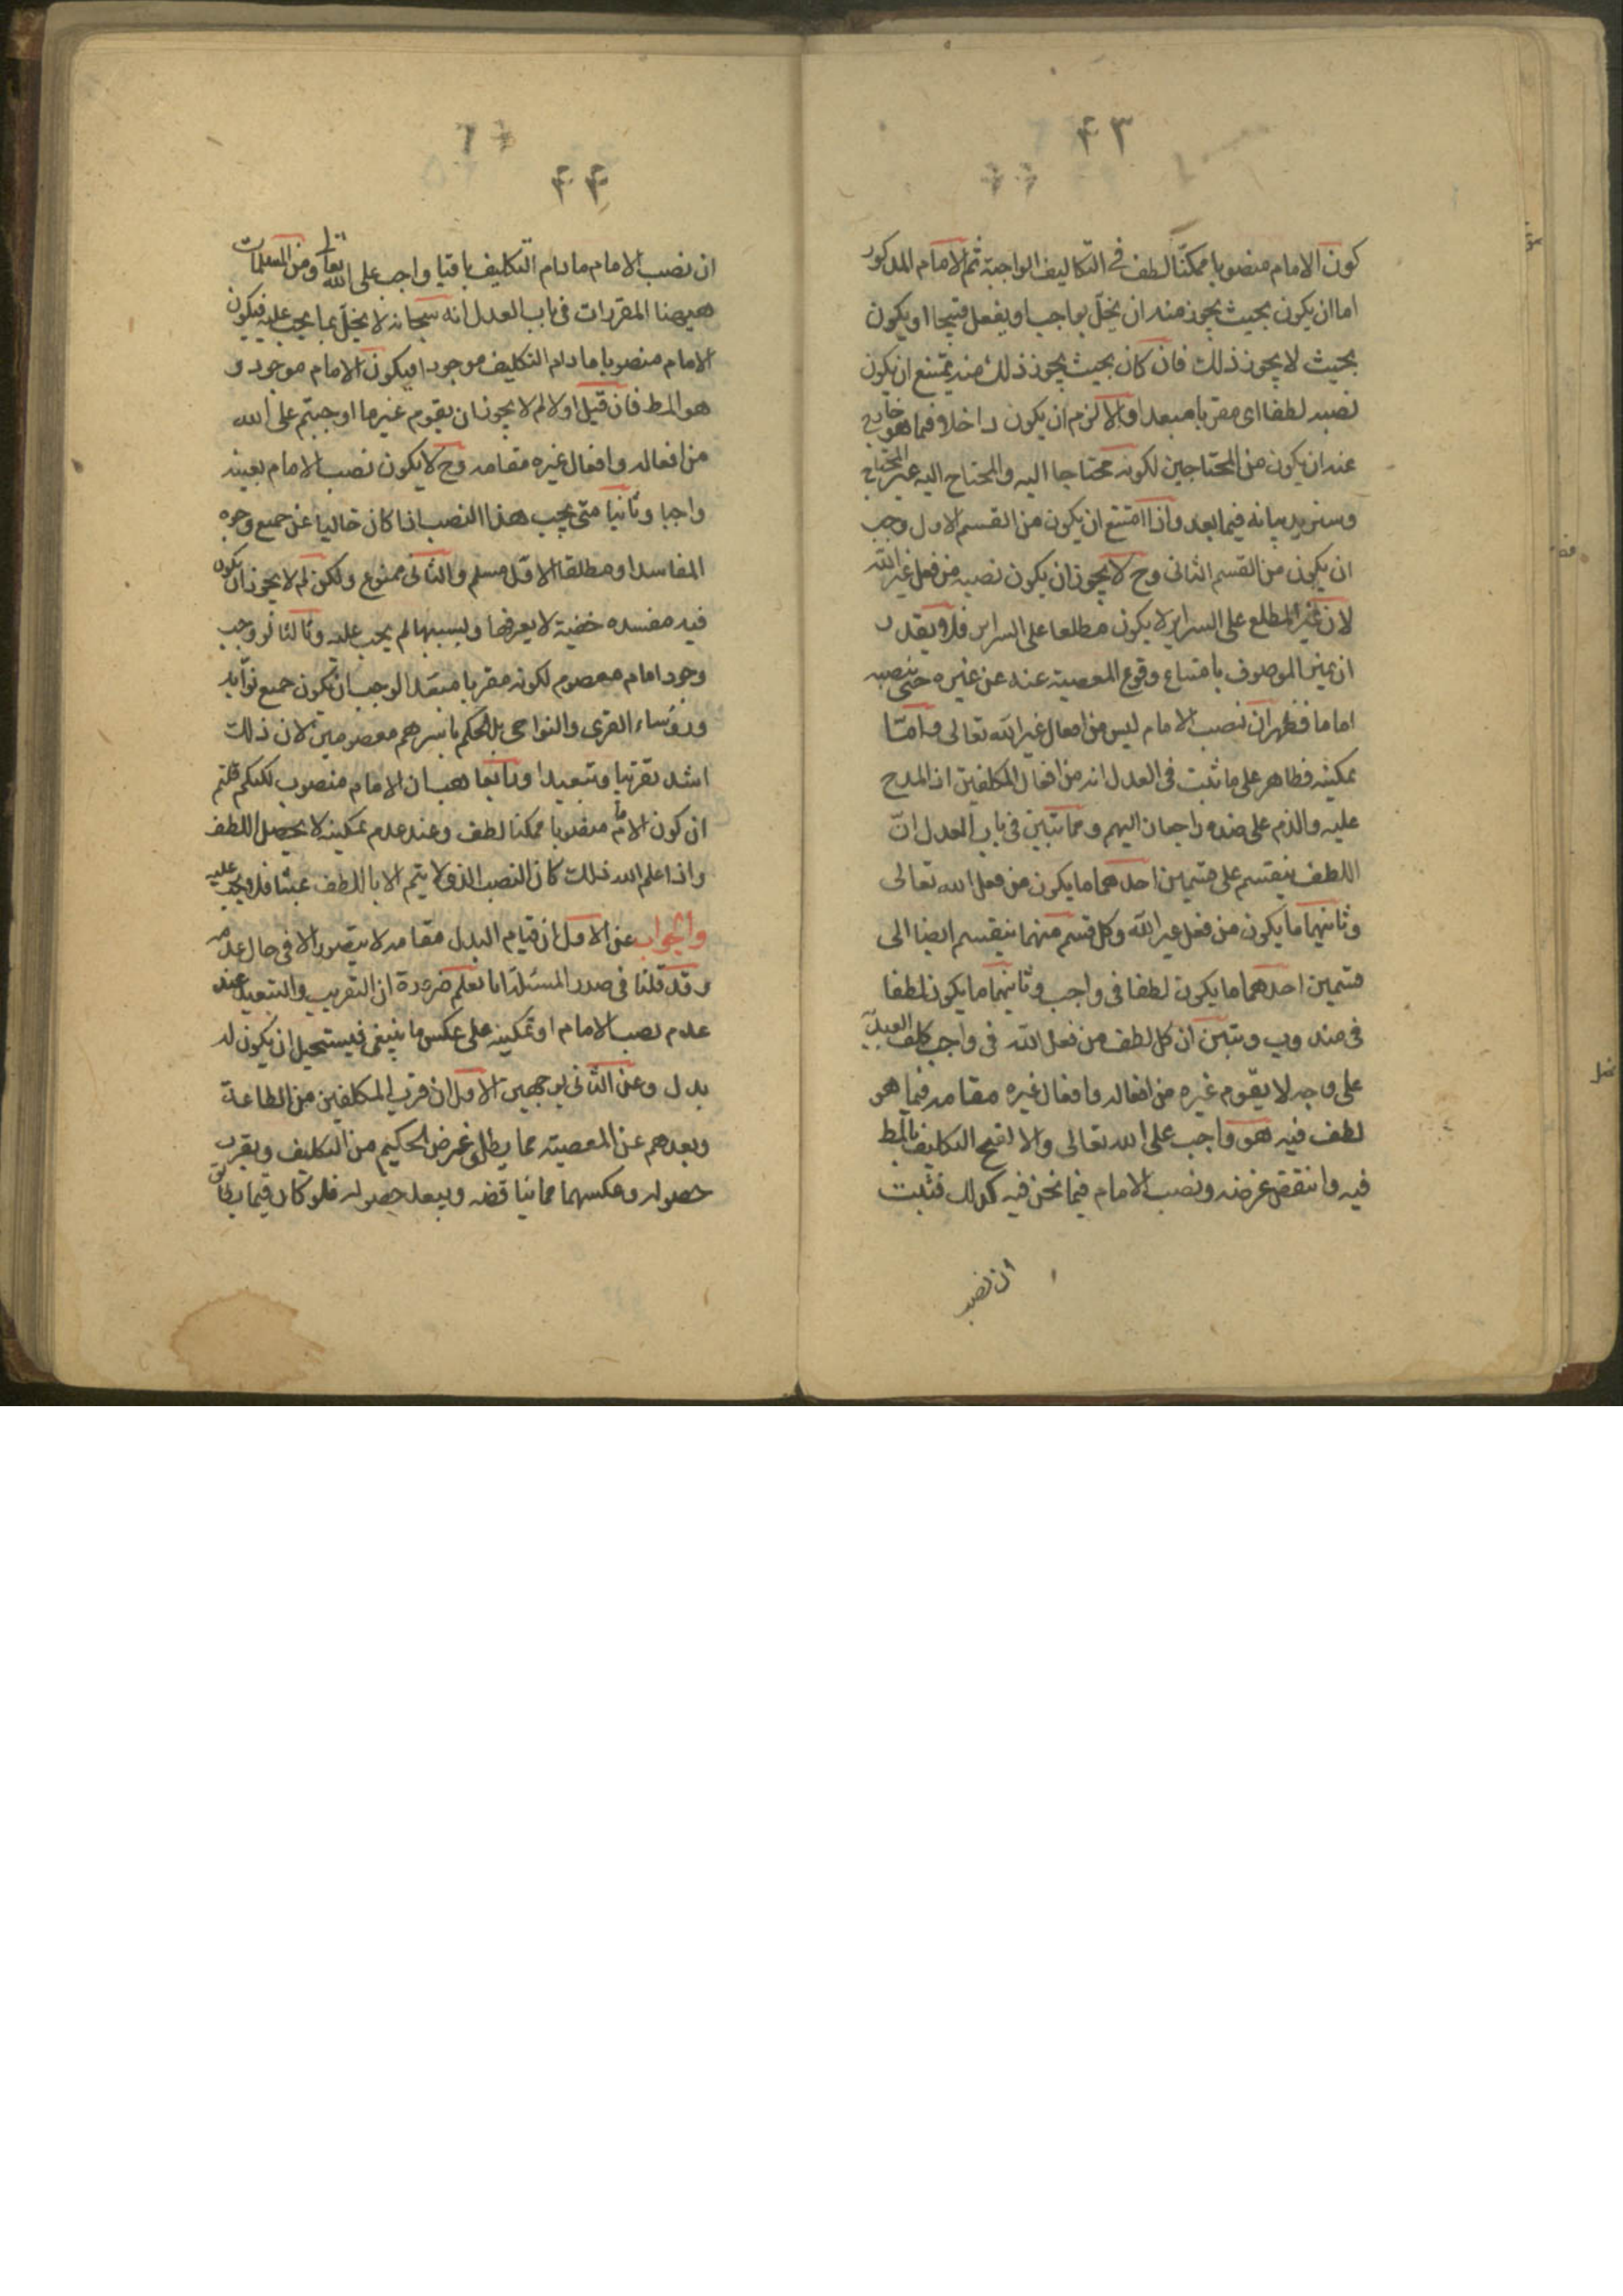 ۴۳
كون الامام منصوبا ممكنا لطف فى التكاليف الواجبة ثم الامام المذكور
اما ان يكون بحيث يجوز منه ان يخل بواجب او يفعل قبيحا او يكون
بحيث لا يجوز ذلك فان كان بحيث يجوز ذلك منه يمتنع ان يكون
نصبه لطفا اى مقربا مبعدا والا لزم ان يكون داخلا فيما هو خارج
عنه ان يكون من المحتاجين لكونه محتاجا اليه والمحتاج اليه غير المحتاج
وسنزيد بيانه فيما بعد واذا امتنع ان يكون من القسم الاول وجب
ان يكون من القسم الثانى وح لا يجوز ان يكون نصبه من فعل غير الله
لان غير المطلع على السراير لا يكون مطلعا على السراير فلا يقدر
ان يميز الموصوف بامتناع وقوع المعصية عنه عن غيره حتى ينصبه
اماما فظهر ان نصب الامام ليس من افعال غير الله تعالى واما
تمكينه فظاهر على ما ثبت فى العدل انه من افعال المكلفين اذ المدح
عليه والذم على ضده راجعان اليهم ومما تبين فى باب العدل ان
اللطف ينقسم على قسمين احدهما ما يكون من فعل الله تعالى
وثانيهما ما يكون من فعل غير الله وكل قسم منهما ينقسم ايضا الى
قسمين احدهما ما يكون لطفا فى واجب وثانيهما ما يكون لطفا
فى مندوب وتبين ان كل لطف من فعل الله فى واجب كلف العبد به
على وجه لا يقوم غيره من افعاله وافعال غيره مقامه فيما هو
لطف فيه هو واجب على الله تعالى والا لقبح التكليف بالمط
فيه وانتقض غرضه ونصب الامام فيما نحن فيه كذلك فثبت
ان نصب
۴۴
ان نصب الامام مادام التكليف باقيا واجب على الله تعالى ومن المسلمات
هيهنا المقررات فى باب العدل انه سبحانه لا يخل بما يجب عليه فيكون
الامام منصوبا مادام التكليف موجودا فيكون الامام موجود و
هو المط فان قيل اولا لم لا يجوز ان يقوم غير ما اوجبتم على الله
من افعاله وافعال غيره مقامه وح لا يكون نصب الامام بعينه
واجبا وثانيا متى يجب هذا النصب اذا كان خاليا عن جميع وجوه
المفاسد او مطلقا الاول مسلم والثانى ممنوع ولكن لم لا يجوز ان يكون
فيه مفسده خفية لا يعرفها وبسببها لم يجب عليه وثالثا لو وجب
وجود امام معصوم لكونه مقربا مبعدا لوجب ان يكون جميع نوابه
ورؤساء القرى والنواحى بل الحكم باسرهم معصومين لان ذلك
اشد تقريبا وتبعيدا ورابعا هب ان الامام منصوب لكنكم قلتم
ان كون الامام منصوبا ممكنا لطف وعند عدم تمكينه لا يحصل اللطف
واذا علم الله ذلك كان النصب الذى لا يتم الا باللطف عبثا فلا يجب عليه
والجواب عن الاول ان قيام البدل مقامه لا يتصور الا فى حال عدمه
وقد قلنا فى صدر المسئلة انا نعلم ضرورة ان التقريب والتبعيد عند
عدم نصب الامام او تمكينه على عكس ما ينبغى فيستحيل ان يكون له
بدل وعن الثانى بوجهين الاول ان قرب المكلفين من الطاعة
وبعدهم عن المعصية مما يطلق غرض الحكيم من التكليف ويقرب
حصوله وعكسهما مما يناقضه ويبعد حصوله فلو كان فيما يطابق